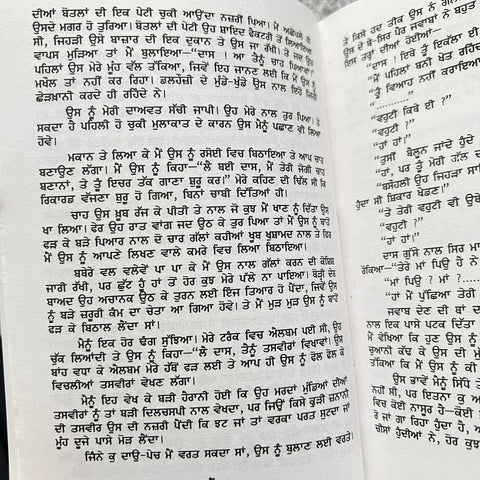 ਦੀਆਂ ਬੋਤਲਾਂ ਦੀ ਇਕ ਪੇਟੀ ਚੁਕੀ ਆਉਂਦਾ ਨਜ਼ਰੀਂ ਪਿਆ। ਮੈਂ ਅਛੋਪਲੇ ਹੀ
ਉਸਦੇ ਮਗਰ ਹੋ ਤੁਰਿਆ। ਬੋਤਲਾਂ ਦੀ ਪੇਟੀ ਉਹ ਸ਼ਾਇਦ ਫੈਕਟਰੀ ਤੋਂ ਲਿਆਇਆ
ਸੀ, ਜਿਹੜੀ ਉਸੇ ਬਾਜ਼ਾਰ ਦੀ ਇਕ ਦੁਕਾਨ ਤੇ ਉਸ ਜਾ ਰੱਖੀ। ਤੇ ਜਦ ਉਹ
ਵਾਪਸ ਮੁੜਿਆ ਤਾਂ ਮੈਂ ਬੁਲਾਇਆ—"ਦਾਸ ! ਆ ਤੈਨੂੰ ਚਾਹ ਪਿਆਵਾਂ।"
ਪਹਿਲਾਂ ਉਸ ਮੇਰੇ ਮੂੰਹ ਵੱਲ ਤੱਕਿਆ, ਜਿਵੇਂ ਇਹ ਜਾਨਣ ਲਈ ਕਿ ਮੈਂ ਉਸ ਨੂੰ
ਮਖੌਲ ਤਾਂ ਨਹੀਂ ਕਰ ਰਿਹਾ। ਡਲਹੌਜ਼ੀ ਦੇ ਮੁੰਡੇ-ਖੁੰਡੇ ਉਸ ਨਾਲ ਇਹੋ ਜਿਹੀ
ਛੇੜਖ਼ਾਨੀ ਕਰਦੇ ਹੀ ਰਹਿੰਦੇ ਨੇ।
ਉਸ ਨੂੰ ਮੇਰੀ ਦਾਅਵਤ ਸੱਚੀ ਜਾਪੀ। ਉਹ ਮੇਰੇ ਨਾਲ ਤੁਰ ਪਿਆ। ਹੋ
ਸਕਦਾ ਹੈ ਪਹਿਲੀ ਹੋ ਚੁਕੀ ਮੁਲਾਕਾਤ ਦੇ ਕਾਰਨ ਉਸ ਮੈਨੂੰ ਪਛਾਣ ਵੀ ਲਿਆ
ਹੋਵੇ।
ਮਕਾਨ ਤੇ ਲਿਆ ਕੇ ਮੈਂ ਉਸ ਨੂੰ ਰਸੋਈ ਵਿਚ ਬਿਠਾਇਆ ਤੇ ਆਪ ਚਾਹ
ਬਣਾਉਣ ਲੱਗਾ। ਮੈਂ ਉਸ ਨੂੰ ਕਿਹਾ—"ਲੈ ਬਈ ਦਾਸ, ਮੈਂ ਤੇਰੀ ਜੋਗੀ ਚਾਹ
ਬਣਾਨਾਂ, ਤੇ ਤੂੰ ਇਚਰ ਤੱਕ ਗਾਣਾ ਸ਼ੁਰੂ ਕਰ।" ਮੇਰੇ ਕਹਿਣ ਦੀ ਢਿੱਲ ਸੀ ਕਿ
ਰਿਕਾਰਡ ਵੱਜਣਾ ਸ਼ੁਰੂ ਹੋ ਗਿਆ, ਬਿਨਾਂ ਚਾਬੀ ਦਿੱਤਿਆਂ ਹੀ।
ਚਾਹ ਉਸ ਖ਼ੂਬ ਰੱਜ ਕੇ ਪੀਤੀ ਤੇ ਨਾਲ ਜੋ ਕੁਝ ਮੈਂ ਖਾਣ ਨੂੰ ਦਿੱਤਾ ਉਸ
ਖਾ ਲਿਆ। ਫੇਰ ਉਹ ਰਾਤ ਵਾਂਗ ਜਦ ਉਠ ਕੇ ਤੁਰ ਪਿਆ ਤਾਂ ਮੈਂ ਉਸ ਨੂੰ ਬਾਹੋਂ
ਫੜ ਕੇ ਬੜੇ ਪਿਆਰ ਨਾਲ ਦੋ ਚਾਰ ਗੱਲਾਂ ਕਹੀਆਂ ਖੂਬ ਖੁਸ਼ਾਮਦ ਨਾਲ ਤੇ ਫਿਰ
ਮੈਂ ਉਸ ਨੂੰ ਆਪਣੇ ਲਿਖਣ ਵਾਲੇ ਕਮਰੇ ਵਿਚ ਲਿਆ ਬਿਠਾਇਆ।
ਬਥੇਰੇ ਵਲ ਵਲੇਵੇਂ ਪਾ ਪਾ ਕੇ ਮੈਂ ਉਸ ਨਾਲ ਗੱਲਾਂ ਕਰਨ ਦੀ ਕੋਸ਼ਿਸ਼
ਜਾਰੀ ਰੱਖੀ, ਪਰ ਛੁੱਟ ਹੂੰ ਹਾਂ ਤੋਂ ਹੋਰ ਕੁਝ ਮੇਰੇ ਪੱਲੇ ਨਾ ਪਾਇਆ। ਥੋੜੀ ਦੇਰ
ਬਾਅਦ ਉਹ ਅਚਾਨਕ ਉਠ ਕੇ ਤੁਰਨ ਲਈ ਇਜ ਤਿਆਰ ਹੋ ਪੈਂਦਾ, ਜਿਵੇਂ ਉਸ
ਨੂੰ ਬੜੇ ਜ਼ਰੂਰੀ ਕੰਮ ਦਾ ਚੇਤਾ ਆ ਗਿਆ ਹੋਵੇ। ਤੇ ਮੈਂ ਮੁੜ ਮੁੜ ਉਸ ਨੂੰ ਬਾਹੋਂ
ਫੜ ਕੇ ਬਿਠਾਲ ਲੈਂਦਾ ਸਾਂ।
ਮੈਨੂੰ ਇਕ ਹੋਰ ਢੰਗ ਸੁੱਝਿਆ। ਮੇਰੇ ਟਰੰਕ ਵਿਚ ਐਲਬਮ ਪਈ ਸੀ, ਉਹ
ਚੁੱਕ ਲਿਆਂਦੀ ਤੇ ਉਸ ਨੂੰ ਕਿਹਾ—"ਲੈ ਦਾਸ, ਤੈਨੂੰ ਤਸਵੀਰਾਂ ਵਿਖਾਵਾਂ।" ਉਸ
ਬਾਂਹ ਵਧਾ ਕੇ ਐਲਬਮ ਮੇਰੇ ਹੱਥੋਂ ਫੜ ਲਈ ਤੇ ਆਪ ਹੀ ਉਸ ਨੂੰ ਫੋਲ ਫੋਲ ਕੇ
ਵਿਚਲੀਆਂ ਤਸਵੀਰਾਂ ਵੇਖਣ ਲੱਗਾ।
ਮੈਨੂੰ ਇਹ ਵੇਖ ਕੇ ਬੜੀ ਹੈਰਾਨੀ ਹੋਈ ਕਿ ਉਹ ਮਰਦਾਂ ਮੁੰਡਿਆਂ ਦੀਆਂ
ਤਸਵੀਰਾਂ ਨੂੰ ਤਾਂ ਬੜੀ ਦਿਲਚਸਪੀ ਨਾਲ ਵੇਖਦਾ, ਪਰ ਜਿਉਂ ਕਿਸੇ ਕੁੜੀ ਜ਼ਨਾਨੀ
ਦੀ ਤਸਵੀਰ ਉਸ ਦੀ ਨਜ਼ਰੀਂ ਪੈਂਦੀ ਕਿ ਝਟ ਜਾਂ ਤਾਂ ਵਰਕਾ ਪਰਤ ਸੁਟਦਾ ਜਾਂ
ਮੂੰਹ ਦੂਜੇ ਪਾਸੇ ਮੋੜ ਲੈਂਦਾ।
ਜਿੰਨੇ ਕੁ ਦਾਉ-ਪੇਚ ਮੈਂ ਵਰਤ ਸਕਦਾ ਸਾਂ, ਉਸ ਨੂੰ ਬੁਲਾਣ ਲਈ ਵਰਤੇ।
ਕਿਸੇ ਹਦ ਤੀਕ ਉਸ ਨੇ
ਉਸ ਦੇ ਬੇ-ਸਿਰ ਪੈਰ ਜਵਾਬਾਂ ਨੇ ਬਹੁਤ
ਇਸ ਤਰ੍ਹਾਂ ਦੀਆਂ ਹੋਈਆਂ—
"ਦਾਸ ! ਇਥੇ ਤੂੰ ਇਕੱਲਾ ਈ
"ਮੈਂ ਪਹਿਲਾਂ ਬਨੀ ਖੇਤ ਰਹਿੰਦਾ
"ਤੂੰ ਵਿਆਹ ਨਹੀਂ ਕਰਾਇਆ
"..........."
"ਵਹੁਟੀ ਕਿਥੇ ਈ ?"
"ਵਹੁਟੀ ?"
"ਹਾਂ !"
"ਤੁਸੀਂ ਬੈਲੂਨ ਜਾਂਦੇ ਹੁੰਦੇ
"ਹਾਂ, ਪਰ ਤੂੰ ਮੇਰੀ ਗੱਲ ਦਾ
"ਬਸੋਹਲੀ ਉਹ ਜਿਹੜਾ ਸਾਹਬ
ਸੀ ਸ਼ਿਕਾਰ ਖੇਡਣ।"
"ਤੇ ਤੇਰੀ ਵਹੁਟੀ ਵੀ ਉਥੇ
"ਵਹੁਟੀ ?"
"ਹਾਂ ਹਾਂ।"
ਦਾਸ ਗੁੱਸੇ ਨਾਲ ਸਿਰ ਮਾਰ
ਰੋਕਿਆ—"ਤੇਰੇ ਮਾਂ ਪਿਉ ਹੈ ਨੇ
"ਮਾਂ ਪਿਉ ? ਮਾਂ ?.......
"ਹਾਂ ਮੈਂ ਪੁੱਛਿਆ ਤੇਰੀ ਮਾਂ
ਜਵਾਬ ਦੇਣ ਦੀ ਥਾਂ ਦਾਸ
ਨਾਲ ਇਕ ਪਾਸੇ ਪਟਕ ਦਿੱਤਾ
ਮੈਂ ਵੇਖਿਆ ਕਿ ਹੁਣ ਉਸ ਨੂੰ
ਚੁਆਨੀ ਕੱਢ ਕੇ ਉਸ ਦੀ ਮੁੱਠ